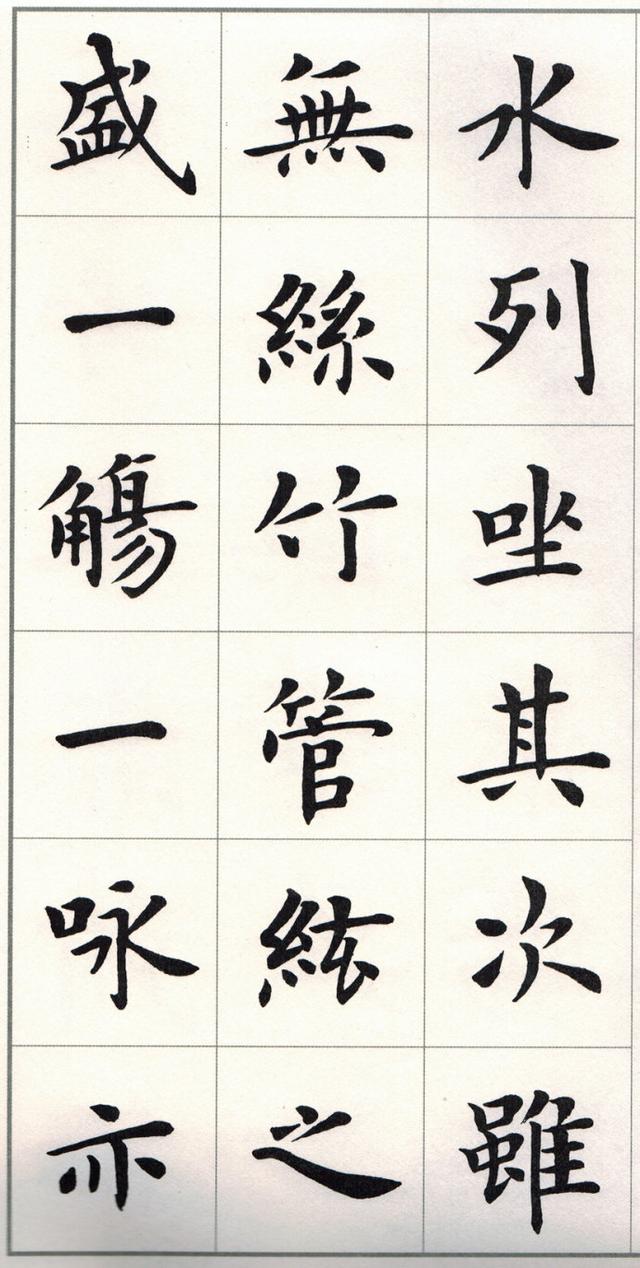 水列坐其次雖
無絲竹管絃之
盛一觴一咏亦